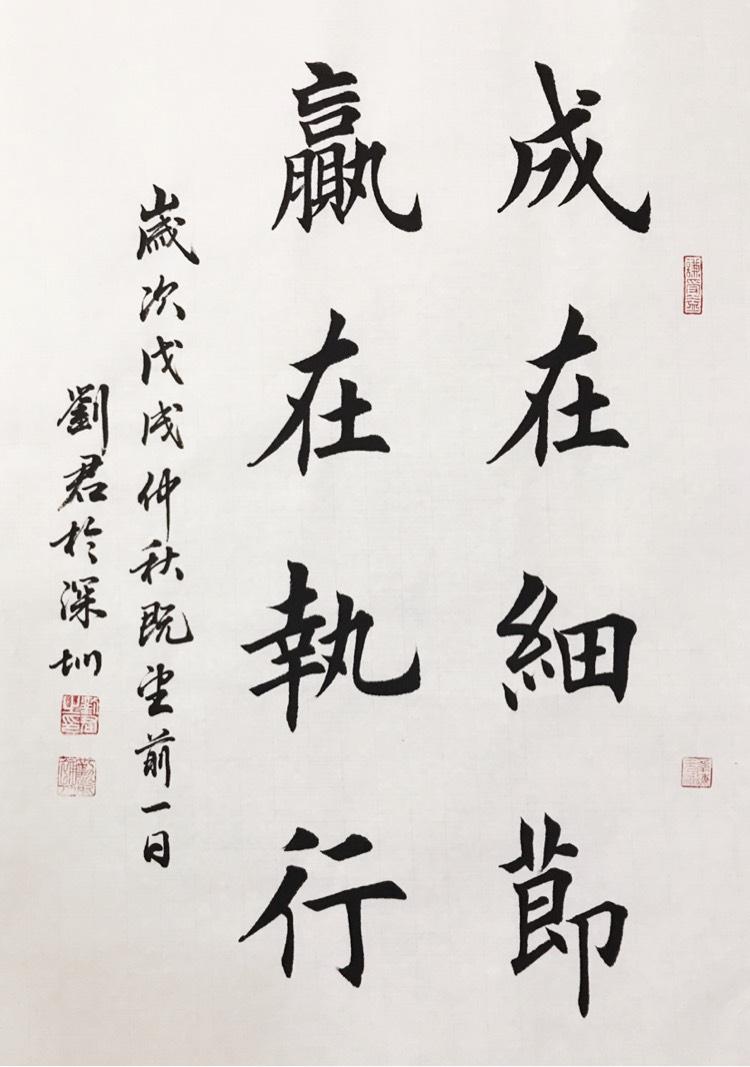 成在細節
贏在執行
歲次戊戌仲秋既望前一日
劉君於深圳
謙受益